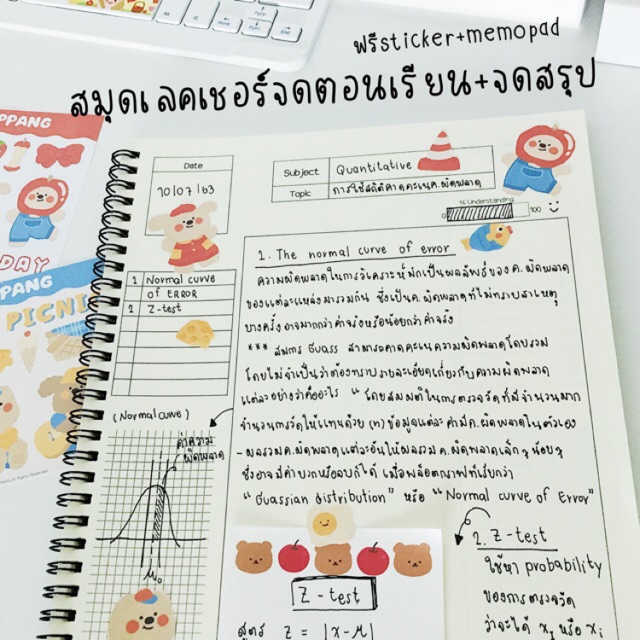 ฟรีsticker+memopad
สมุดเลคเชอร์จดตอนเรียน+จดสรุป
PPANG
DAY
PPANG
PICNI
Date
10/07/63
Subject Quantitative
Topic การใช้สถิติคาดคะเนค.ผิดพลาด
% Understanding
0 100
1 Normal curve
of ERROR
2 Z-test
1. The normal curve of error
ความผิดพลาดในการวิเคราะห์มักเป็นผลลัพธ์ของค.ผิดพลาด
ของแต่ละแหล่งมารวมกัน ซึ่งเป็นค.ผิดพลาดที่ไม่ทราบสาเหตุ
บางครั้งอาจมากกว่าค่าจริงหรือน้อยกว่าค่าจริง
*** สมการ Guass สามารถคาดคะเนความผิดพลาดโดยรวม
โดยไม่จำเป็นว่าต้องทราบรายละเอียดเกี่ยวกับความผิดพลาด
แต่ละอย่างว่าคืออะไร “ โดยสมมติในการตรวจวัดที่มีจำนวนมาก
จำนวนการวัดให้แทนด้วย (n) ข้อมูลแต่ละค่ามีค.ผิดพลาดในตัวเอง
- ผลรวมค.ผิดพลาดแต่ละอันให้ผลรวมค.ผิดพลาดเล็กๆน้อยๆ
ซึ่งอาจมีค่าบวกหรือลบก็ได้ เมื่อพล็อตกราฟที่เรียกว่า
“ Guassian distribution” หรือ “Normal curve of Error”
(Normal curve)
ค่าความ
ผิดพลาด
μ₀
Z - test
สูตร Z = |x-μ|
2. Z-test
ใช้หา probability
ของการตรวจวัด
ว่าจะได้ x₁ หรือ xᵢ